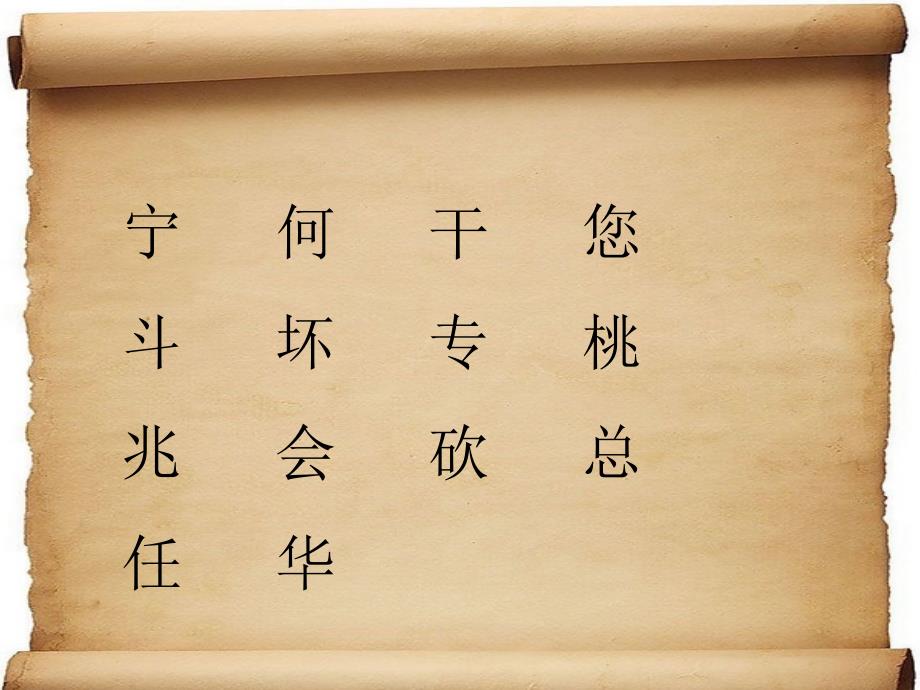 宁 何 干 您
斗 坏 专 桃
兆 会 砍 总
任 华